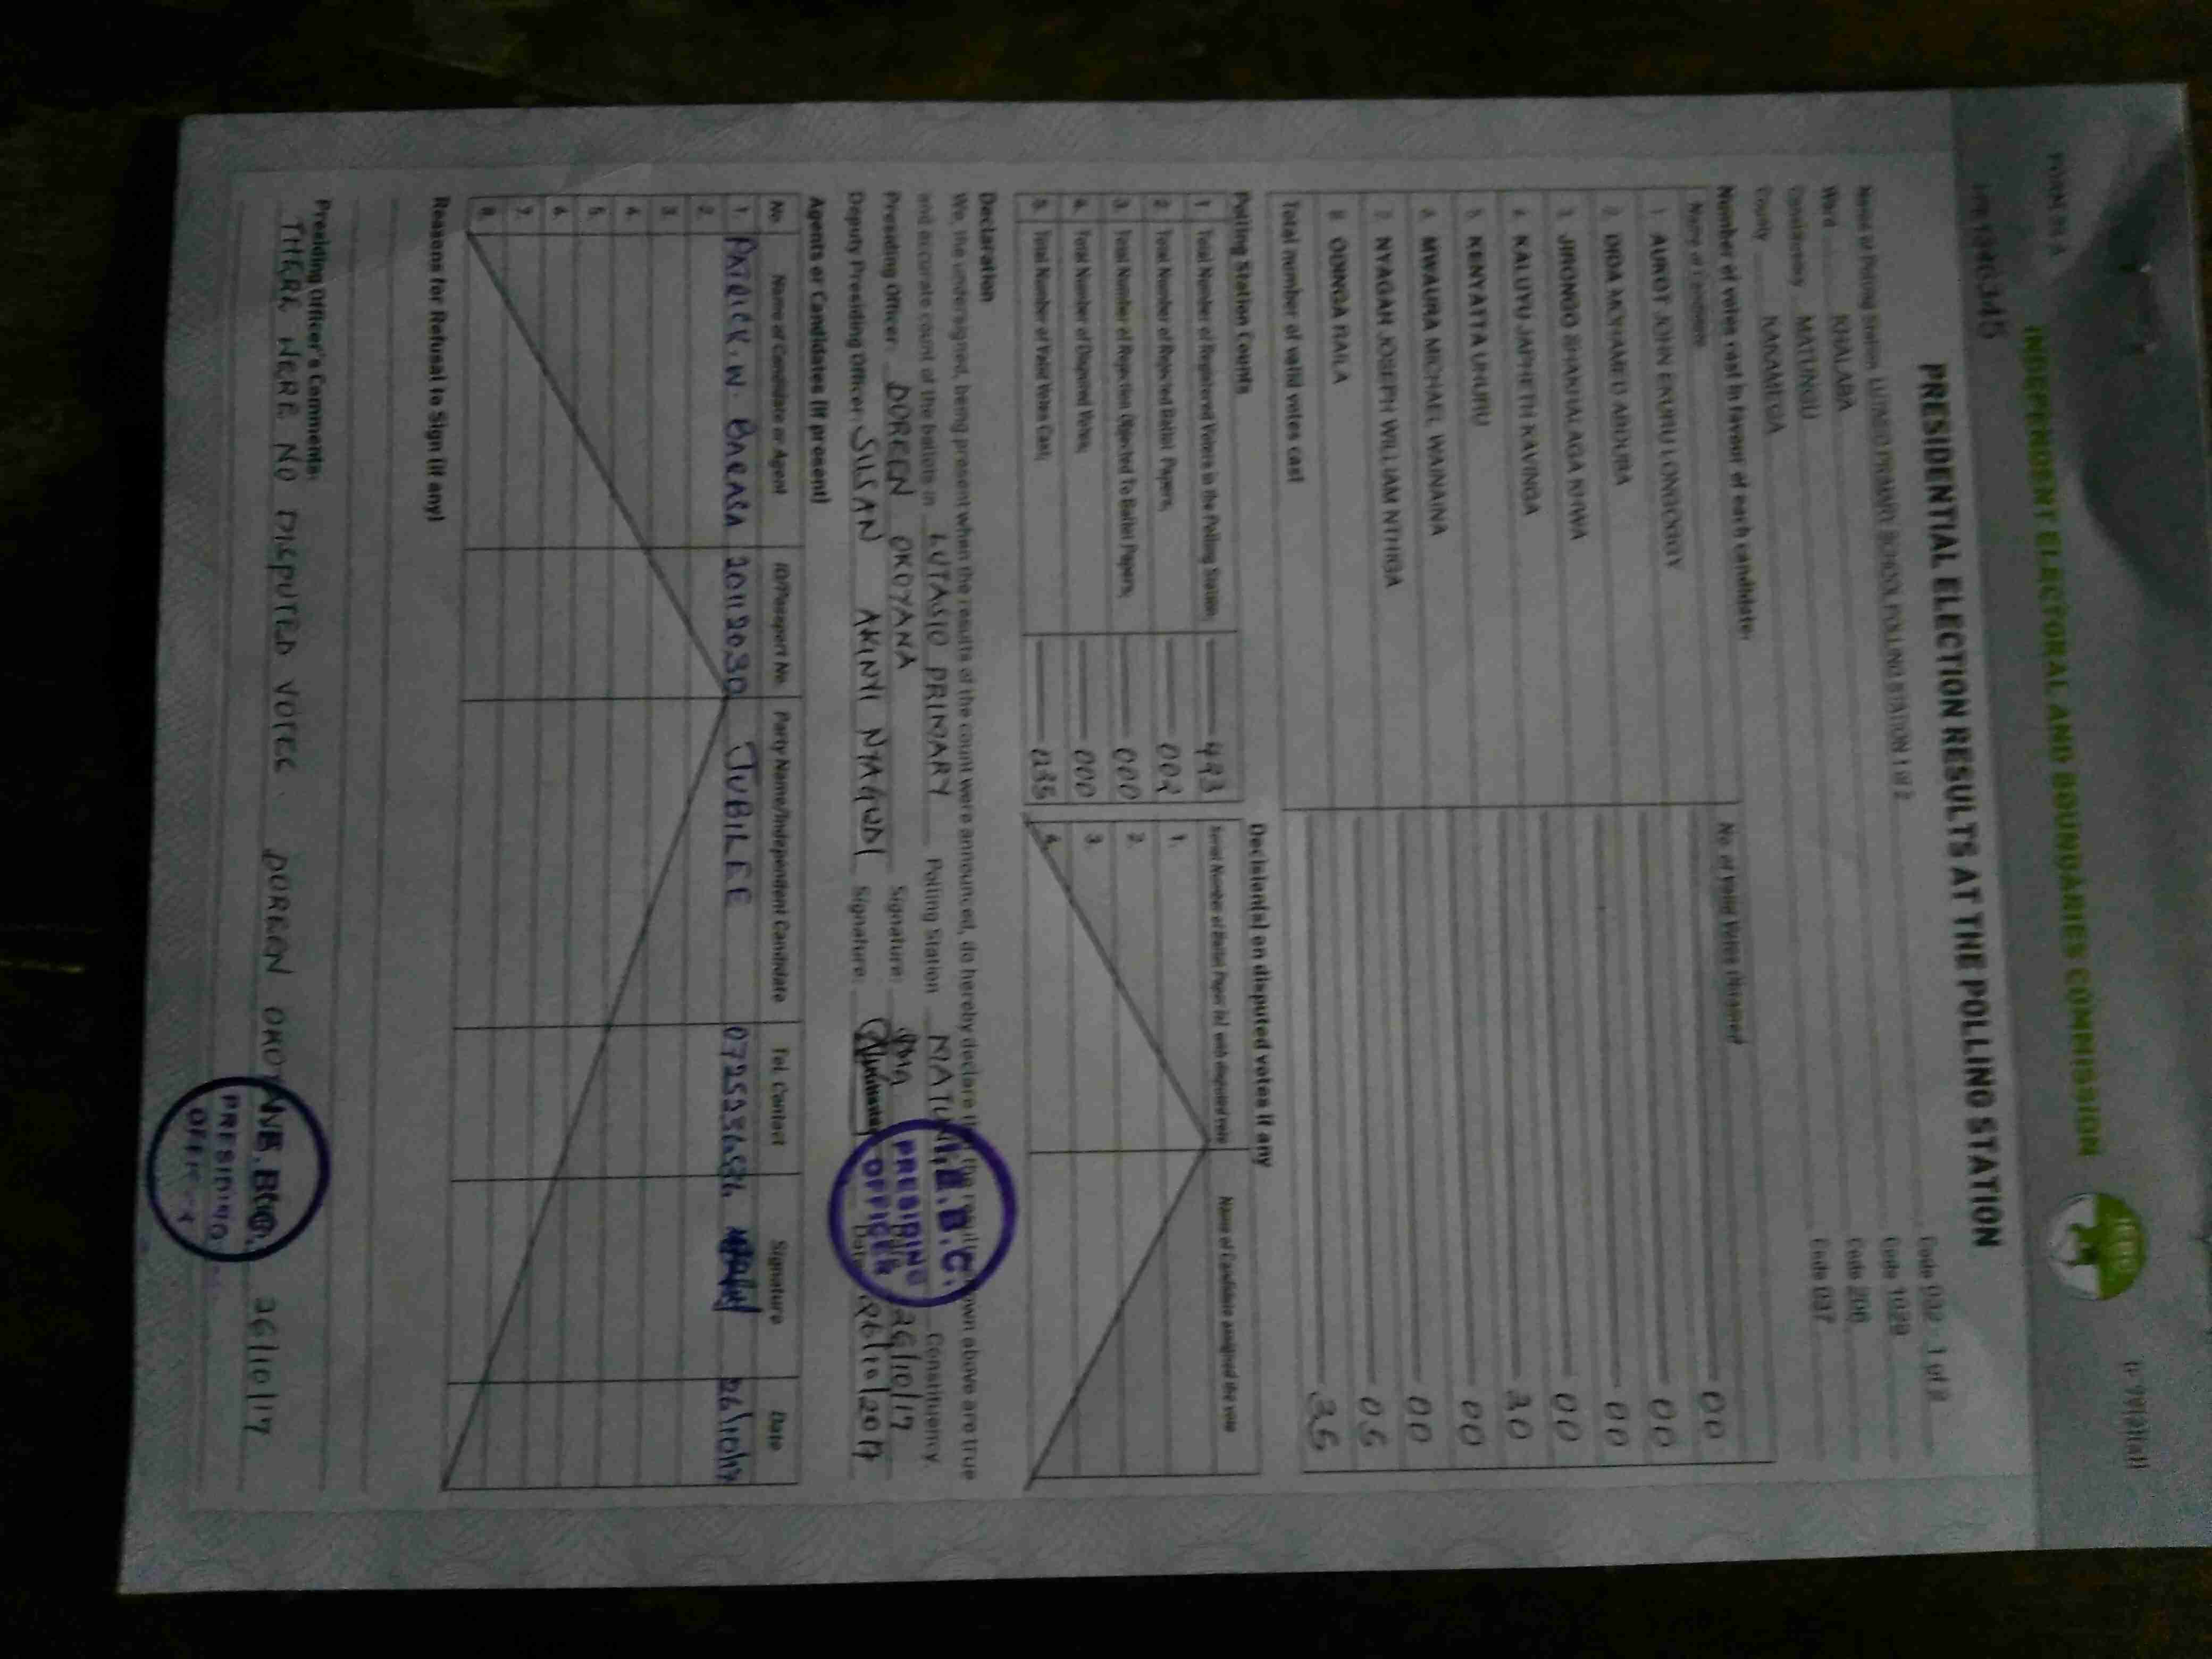 FORM 34 A
INDEPENDENT ELECTORAL AND BOUNDARIES COMMISSION
IEBC
PRESIDENTIAL ELECTION RESULTS AT THE POLLING STATION
Name of Polling Station LUTASIO PRIMARY SCHOOL POLLING STATION 1 of 2 Code 032 - 1 of 2
Ward KHALABA Code 1029
Constituency MATUNGU Code 206
County KAKAMEGA Code 037
Number of votes cast in favor of each candidate:
Name of Candidate No. of Valid Votes Obtained
1. AUKOT JOHN EKURU LONGOGGY 00
2. DIDA MOHAMED ABDUBA 00
3. JIRONGO SHAKHALAGA KHWA 00
4. KALUYU JAPHETH KAVINGA 00
5. KENYATTA UHURU 30
6. MWAURA MICHAEL WAINAINA 00
7. NYAGAH JOSEPH WILLIAM NTHIGA 00
8. ODINGA RAILA 05
Total number of valid votes cast 35
Polling Station Counts
1. Total Number of Registered Voters in the Polling Station; 493
2. Total Number of Rejected Ballot Papers; 002
3. Total Number of Rejection Objected To Ballot Papers; 000
4. Total Number of Disputed Votes; 000
5. Total Number of Valid Votes Cast; 035
Decision(s) on disputed votes if any
Serial Number of Ballot Paper (s) with disputed vote Name of Candidate assigned the vote
1.
2.
3.
4.
Declaration
We, the undersigned, being present when the results of the count were announced, do hereby declare that the results shown above are true
and accurate count of the ballots in LUTASIO PRIMARY Polling Station Constituency.
Presiding Officer: DOREEN OKOYANA Signature: 26/10/17
Deputy Presiding Officer: SUSAN AKINYI Signature: Date 26/10/2017
I.E.B.C.
PRESIDING
OFFICER
Agents or Candidates (if present)
No. Name of Candidate or Agent ID/Passport No. Party Name/Independent Candidate Tel. Contact Signature Date
1. PATRICK. W. BARASA 20112030 JUBILEE 26/10/17
2.
3.
4.
5.
6.
7.
8.
Reasons for Refusal to Sign (if any)
Presiding Officer's Comments:
THERE WERE NO DISPUTED VOTES. DOREEN 26/10/17
PRESIDING
OFFICER